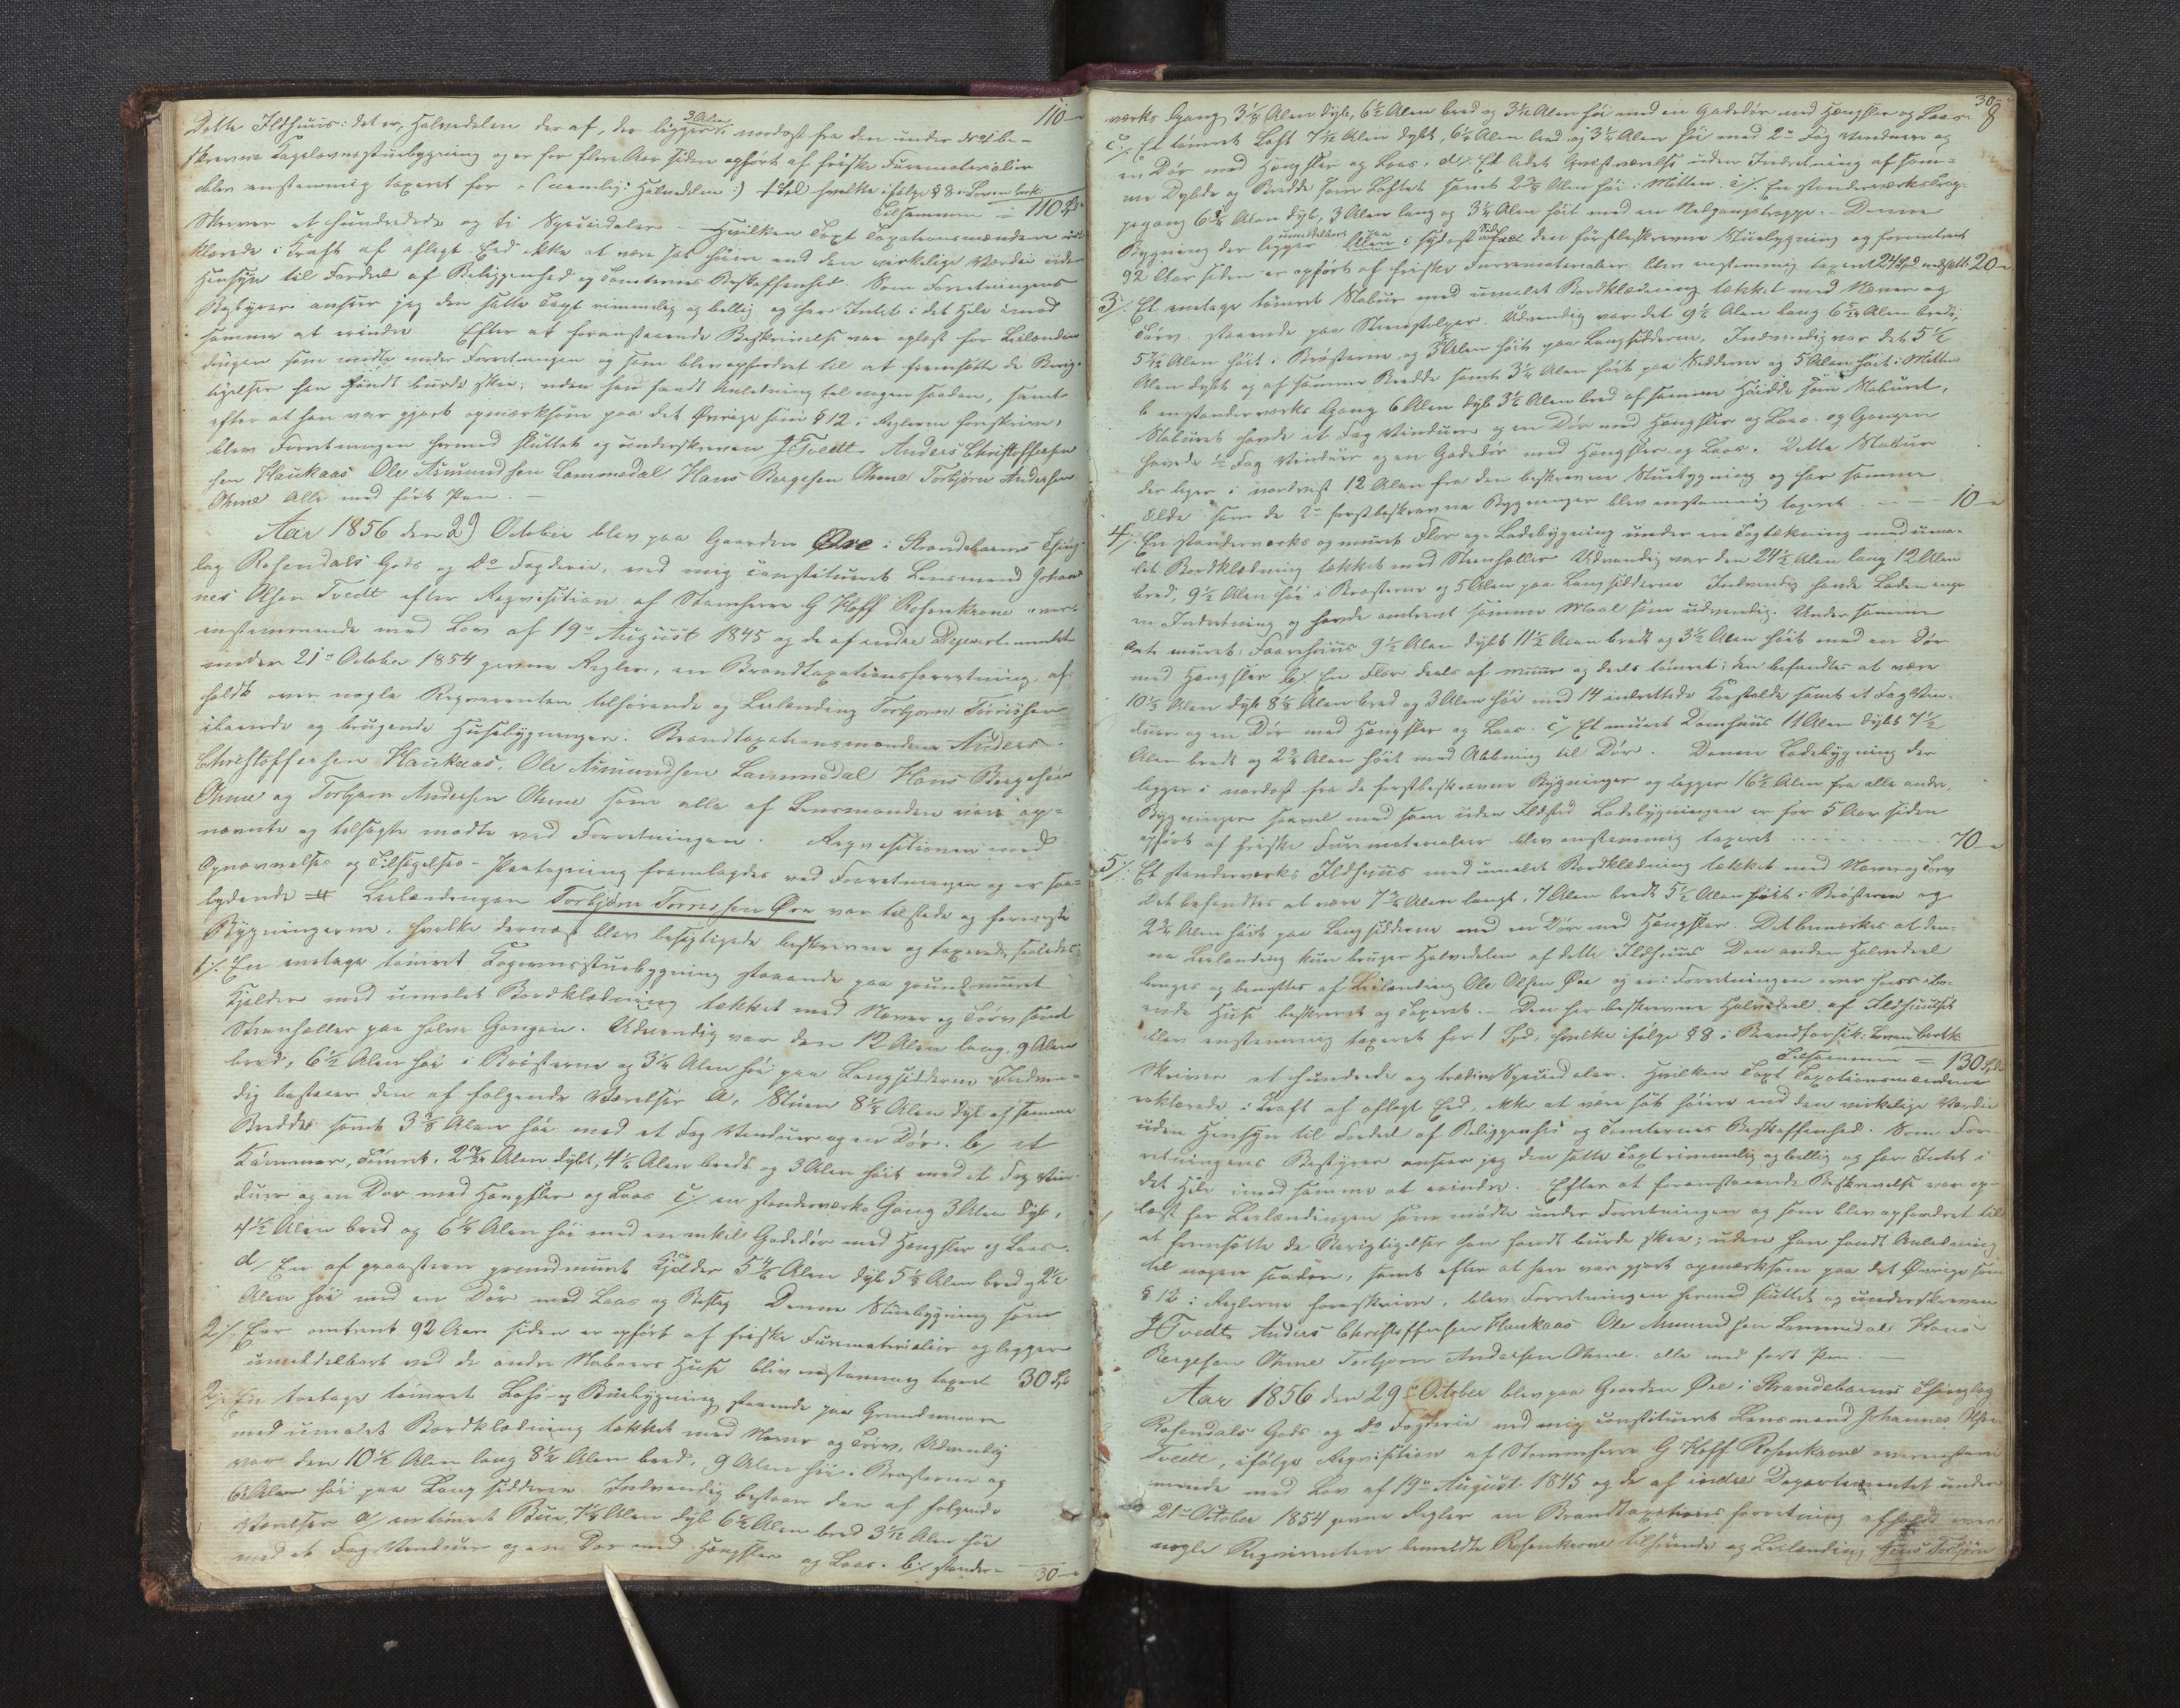 110
Dette Ildhuus: det er, Halvedelen deraf, der ligger 3 Alen i nordost fra den under No 1 be-
skrevne Røgelovnsstuebygning og er for flere Aar siden opført af friske Furematerialier
blev enstemmig taxeret for (nemlig: Halvedelen :) 1 Spd hvilke ifølge § 8 i Loven bortk:
Tilsammen = 110 Spd
Skriver et hundrede og ti Speciedaler. Hvilken Taxt Taxationsmændene er-
klærede i Kraft af aflagt Eed ikke at være sat høiere end den virkelige Værdie uden
Hensyn til Fordeel af Beliggenhed og Tomternes Beskaffenhed. Som Forretningens
Bestyrer anseer jeg den satte Taxt rimmelig og billig og har Intet i det Hele imod
samme at erindre. Efter at foranstaaende Beskrivelse var oplæst for Leilæn-
dingen som mødte under Forretningen og som blev opfordret til at fremsætte de Berig-
tigelser han fandt burde skee; uden han fandt Anledning til nogen saadan, samt
efter at han var gjort opmærksom paa det Øvrige som § 12 i Reglerne foreskrive,
blev Forretningen hermed sluttet og underskreven J Tvedt Anders Christoffer-
sen Haukaas Ole Asmundsen Lammedal Hans Bergesen Ohme Torbjørn Andersen
Ohme Alle med ført Pen. —
Aar 1856 den 29 October blev paa Gaarden Øre i Strandebarms Thing-
lag Rosendals Gods og Do Fogderie, ved mig constitueret Lensmand Johan-
nes Olsen Tvedt efter Reqvisition af Stamherre G Hoff Rosenkrone over-
enstemmende med Lov af 19de August 1845 og de af indre Departementet
under 21de October 1854 givne Regler, en Brandtaxationsforretning af-
holdt over nogle Reqvirenten tilhørende og Leilænding Torbjørn Torrissen
iboende og brugende Husebygninger. Brandtaxationsmændene Anders
Christoffersen Haukaas, Ole Asmundsen Lammedal Hans Bergesen
Ohme og Torbjørn Andersen Ohme som alle af Lensmanden vare op-
nævnte og tilsagte mødte ved Forretningen. Reqvisitionen med
Opnævnelses og Tilsigelses-Paategning fremlagdes ved Forretningen og er saa-
lydende # Leilændingen Torbjørn Torrissen Øre var tilstede og foreviste
Bygningerne, hvilke dernæst blev besigtigede beskrevne og taxerede, saaledes:
1/. En enetages tømret Røgovnsstuebygning staaende paa grundmuret
Kjelder med umalet Bordklædning tækket med Næver og Tørv samt
Steenheller paa halve Gangen. Udvendig var den 12 Alen lang, 9 Alen
bred, 6½ Alen høi i Røsterne og 3¼ Alen høi paa Langsidderne. Indven-
dig bestaaer den af følgende Værelser a, Stuen 8⅓ Alen dyb af samme
Bredde samt 3⅔ Alen høi med et Fag Vinduer og en Dør. b, et
Kammer, tømret, 2¾ Alen dybt, 4⅙ Alen bredt og 3 Alen høit med et Fag Vin-
duer og en Dør med Hængsler og Laas c/. en standerværks Gang 3 Alen dyb,
4½ Alen bred og 6¼ Alen høi med en enkel Gadedør med Hængsler og Laas.
d/ En af graasteen grundmuret Kjelder 5⅙ Alen dyb 5⅓ Alen bred og 2½
Alen høi med en Dør med Laas og Beslag. Denne Stuebygning som
for omtrent 92 Aar siden er opført af friske Furematerialier og ligger
umiddelbart ved de andre Naboers Huse blev enstemmig taxeret 30 Spd
2/. En toetages tømret Lofts- og Buebygning staaende paa Grundmure
med umalet Bordklædning tækket med Næver og Tørv. Udvendig
var den 10½ Alen lang 8½ Alen bred, 9 Alen høi i Brøsterne og
6 Alen høi paa Langsidderne. Indvendig bestaar den af følgende
Værelser a/ en tømret Bue, 7¼ Alen dyb 6½ Alen bred 3½ Alen høi
med et Fag Vinduer og en Dør med Hængsler og Laas. b/. stander-
30
30 8
værks Gang 3⅓ Alen dyb, 6½ Alen bred og 3½ Alen høi med en Gadedør med Hængsler og Laas.
c/. Et tømret Loft 7½ Alen dybt, 6½ Alen bred og 3¼ Alen høi med 2de Fag Vinduer og
en Dør med Hængsler og Laas. d/. Et lidet Qvistværelse uden Indretning af sam-
me Dybde og Bredde som Loftet samt 2⅔ Alen høi i Mitten. e/. En standerværks Trap-
pegang 6¼ Alen dyb, 3 Alen lang og 3¼ Alen høit med en Nedgangstrappe. Denne
Bygning der ligger umiddelbart paa i sydost Side den førstbeskrevne Stuebygning og formeent
92 Aar siden er opført af friske Furematerialier blev enstemmig taxeret 24 Spd nedsatt 20
3/. Et enetages tømret Stabur med umalet Bordklædning tækket med Næver og
Tørv staaende paa Steenstolper. Udvendig var det 9⅙ Alen lang 6½ Alen bredt,
5½ Alen høit i Brøsterne og 3 Alen høit paa Langsidderne. Indvendig var det 5½
Alen dybt og af samme Bredde samt 3¼ Alen høit paa Sidderne og 5 Alen høit i Mitten
b en standerværks Gang 6 Alen dyb 3⅙ Alen bred af samme Høide som Staburet.
Staburet havde et Fag Vinduer og en Dør med Hængsler og Laas. og Gangen
havde ½ Fag Vinduer og en Gadedør med Hængsler og Laas. Dette Stabur
der liger i nordvest 12 Alen fra den beskrevne Stuebygning og har samme
Ælde som de 2de førstbeskrevne Bygninger blev enstemmig taxeret — 10
4/. En standerværks og muret Flor og Ladebygning under en Tagtækning med uma-
let Bordklædning tækket med Steenheller. Udvendig var den 24½ Alen lang 12 Alen
bred, 9½ Alen høi i Brøsterne og 5 Alen paa Langsidderne. Indvendig havde Laden inge-
en Indretning og havde omtrent samme Maal som udvendig. Under samme
a et muret Faarehuus 9½ Alen dybt 11½ Alen bredt og 3½ Alen høit med en Dør
med Hængsler b/. En Flor deels af muur og deels tømret; den befandtes at være
10⅓ Alen dyb 8⅓ Alen bred og 3 Alen høi med 14 indrettede Koestalde samt et Fag Vin-
duer og en Dør med Hængsler og Laas. c/ Et muret Tomhuus 11 Alen dybt 7½
Alen bredt og 2¾ Alen høit med Aabning til Dør. Denne Ladebygning der
ligger i nordost fra de førstbeskrevne Bygninger og ligger 16½ Alen fra alle andre
Bygninger saavel med som uden Ildsted. Ladebygningen er for 5 Aar siden
opført af friske Furematerialier blev enstemmig taxeret — 70
5/. Et standerværks Ildhuus med umalet Bordklædning tækket med Næver og Tørv
Det befandtes at være 7¾ Alen langt, 7 Alen bredt 5½ Alen høit i Brøsterne og
2¾ Alen høit paa Langsidderne med en Dør med Hængsler. Det bemærkes at den-
ne Leilænding kun bruger Halvedelen af dette Ildhuus. Den anden Halvedeel
bruges og benyttes af Leilænding Ole Olsen Øre og er i Forretningen over hans ibo-
ende Huse beskrevet og taxeret. — Den her beskrevne Halvedeel af Ildhuuset
blev enstemmig taxeret for 1 Spd, hvilke ifølge § 8 i Brandforsik: Loven bortk:
Tilsammen = 130 Spd
Skriver et hundrede og tredive Speciedaler. Hvilken Taxt Taxationsmændene
erklærede i Kraft af aflagt Eed, ikke at være sat høiere end den virkelige Værdie
uden Hensyn til Fordeel af Beliggenhed og Tomternes Beskaffenhed. Som For-
retningens Bestyrer anseer jeg den satte Taxt rimmelig og billig og har Intet i
det Hele imod samme at erindre. Efter at foranstaaende Beskrivelse var op-
læst for Leilændingen som mødte under Forretningen og som blev opfordret til
at fremsætte de Berigtigelser han fandt burde skee; uden han fandt Anledning
til nogen saadan, samt efter at han var gjort opmærksom paa det Øvrige som
§ 12 i Reglerne foreskrive, blev Forretningen hermed sluttet og underskreven
J Tvedt, Anders Christoffersen Haukaas Ole Asmundsen Lammedal Hans
Bergesen Ohme Torbjørn Andersen Ohme. alle med ført Pen.
Aar 1856 den 29de October blev paa Gaarden Øre i Strandebarms Thinglag
Rosendals Gods og Do Fogderie ved mig constitueret Lensmand Johannes Olsen
Tvedt, ifølge Reqvisition af Stamherre G Hoff Rosenkrone overenstem-
mende med Lov af 19de August 1845 og de af indre Departementet under
21de October 1854 givne Regler en Brandtaxationsforretning afholdt over
nogle Reqvirenten bemeldte Rosenkrone tilhørende og Leilænding Torbjørn